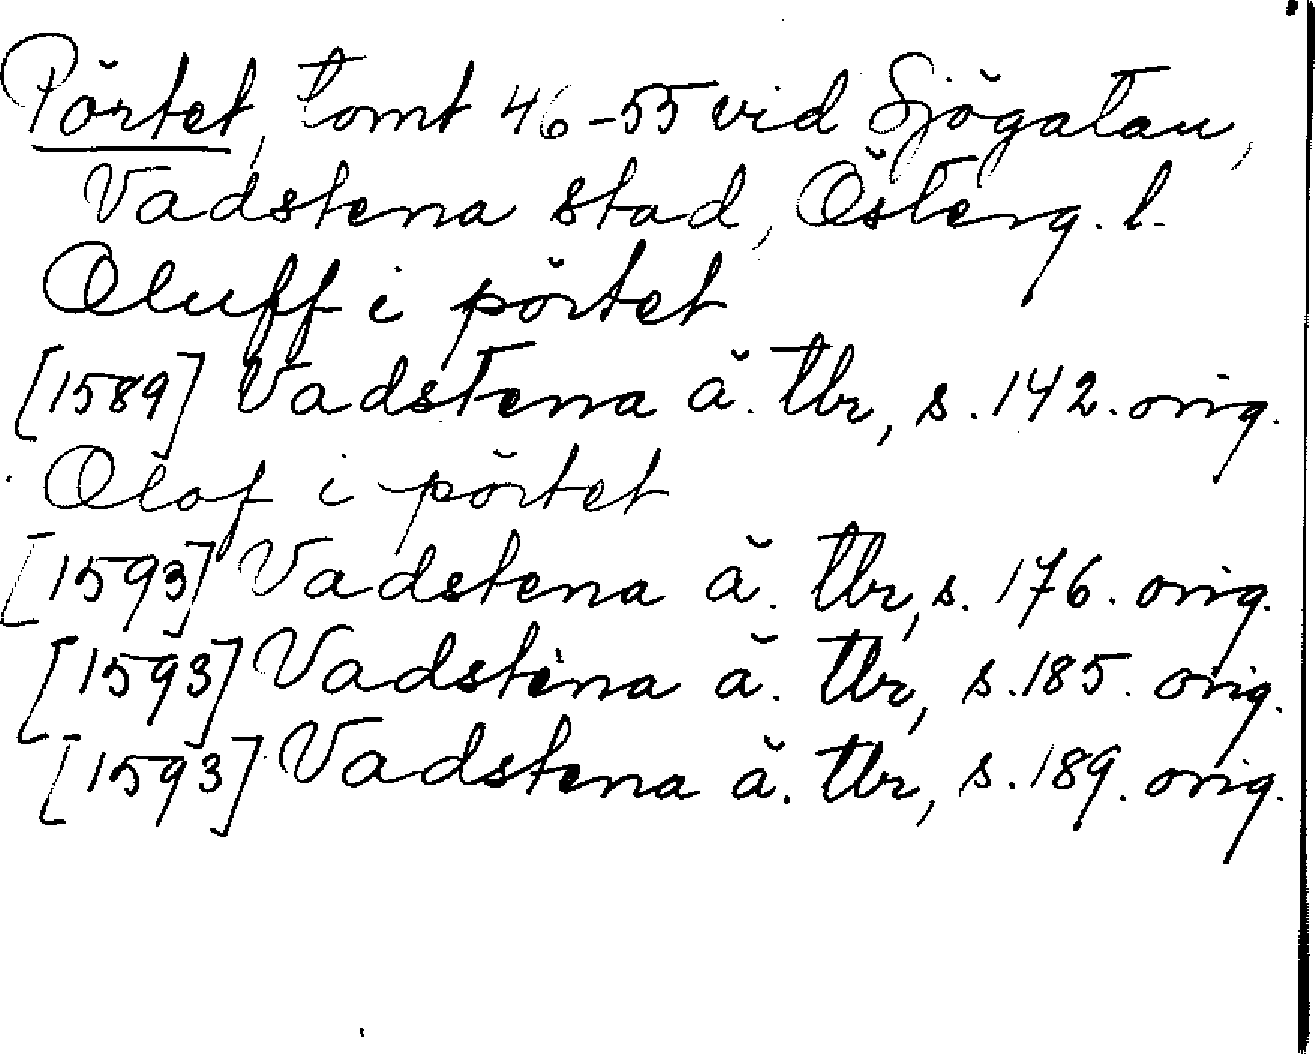 Pörtet, tomt 46-55 vid Sjögatan,
Vadstena stad, Österg. l.
Oluff i pörtet
[1589] Vadstena ä. tbr, s. 142. orig.
Olof i pörtet
[1593] Vadstena ä. tbr, s. 176. orig.
[1593] Vadstena ä. tbr, s. 185. orig.
[1593] Vadstena ä. tbr, s. 189. orig.